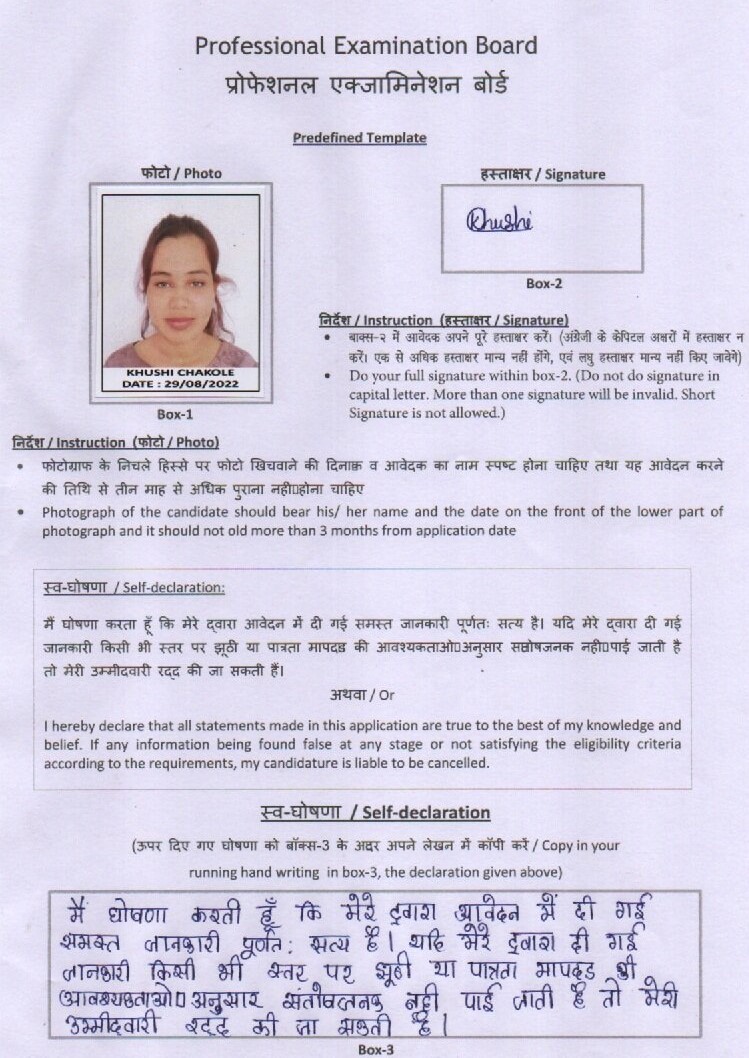 Professional Examination Board
प्रोफेशनल एक्जामिनेशन बोर्ड
Predefined Template
फोटो / Photo
हस्ताक्षर / Signature
Khushi
KHUSHI CHAKOLE
DATE : 29/08/2022
Box-1
Box-2
निर्देश / Instruction (हस्ताक्षर / Signature)
• बाक्स-२ में आवेदक अपने पूरे हस्ताक्षर करें। (अंग्रेजी के केपिटल अक्षरों में हस्ताक्षर न
करें। एक से अधिक हस्ताक्षर मान्य नहीं होंगे, एवं लघु हस्ताक्षर मान्य नहीं किए जावेगे)
• Do your full signature within box-2. (Do not do signature in
capital letter. More than one signature will be invalid. Short
Signature is not allowed.)
निर्देश / Instruction (फोटो / Photo)
• फोटोग्राफ के निचले हिस्से पर फोटो खिचवाने की दिनाक़ व आवेदक का नाम स्पष्ट होना चाहिए तथा यह आवेदन करने
की तिथि से तीन माह से अधिक पुराना नही▯होना चाहिए
• Photograph of the candidate should bear his/ her name and the date on the front of the lower part of
photograph and it should not old more than 3 months from application date
स्व-घोषणा / Self-declaration:
मैं घोषणा करता हूँ कि मेरे द्वारा आवेदन में दी गई समस्त जानकारी पूर्णतः सत्य है। यदि मेरे द्वारा दी गई
जानकारी किसी भी स्तर पर झूठी या पात्रता मापदड़ की आवश्यकताओ▯अनुसार सतोषजनक नही▯पाई जाती है
तो मेरी उम्मीदवारी रद्द की जा सकती हैं।
अथवा / Or
I hereby declare that all statements made in this application are true to the best of my knowledge and
belief. If any information being found false at any stage or not satisfying the eligibility criteria
according to the requirements, my candidature is liable to be cancelled.
स्व-घोषणा / Self-declaration
(ऊपर दिए गए घोषणा को बॉक्स-3 के अदर अपने लेखन में कॉपी करें / Copy in your
running hand writing in box-3, the declaration given above)
मैं घोषणा करती हूँ कि मेरे द्वारा आवेदन में दी गई
समस्त जानकारी पूर्णत: सत्य है। यदि मेरे द्वारा दी गई
जानकारी किसी भी स्तर पर झूठी या पात्रता मापदड की
आवश्यकताओ▯ अनुसार संतोषजनक नही पाई जाती है तो मेरी
उम्मीदवारी रद्द की जा सकती है।
Box-3